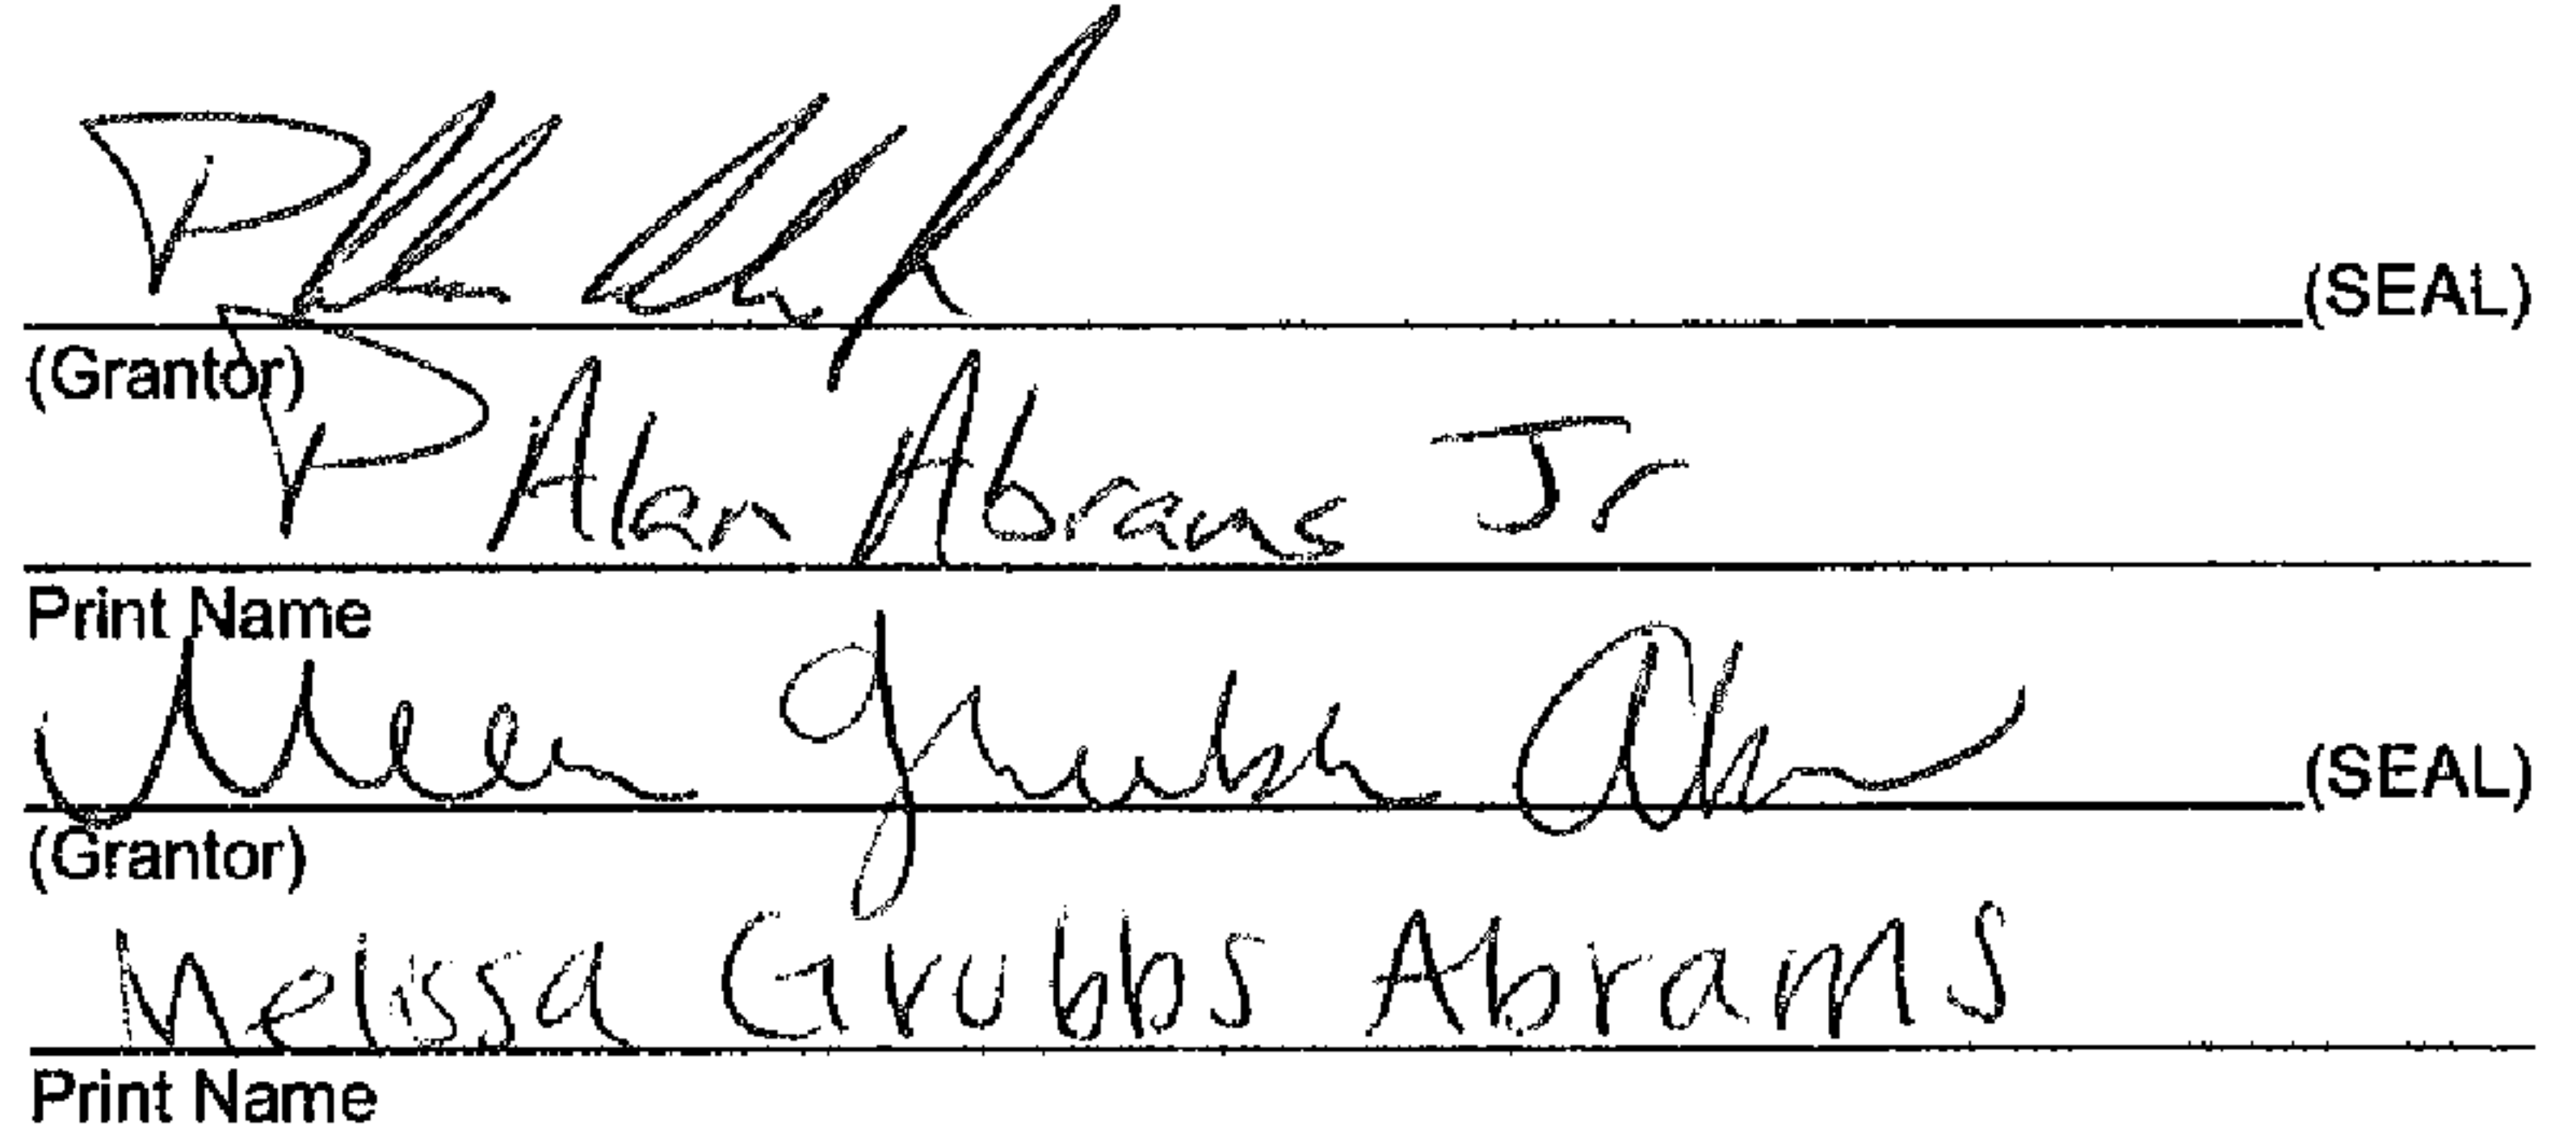 (SEAL)
(Grantor)
P Alan Abrams Jr
Print Name
(SEAL)
(Grantor)
Melissa Grubbs Abrams
Print Name